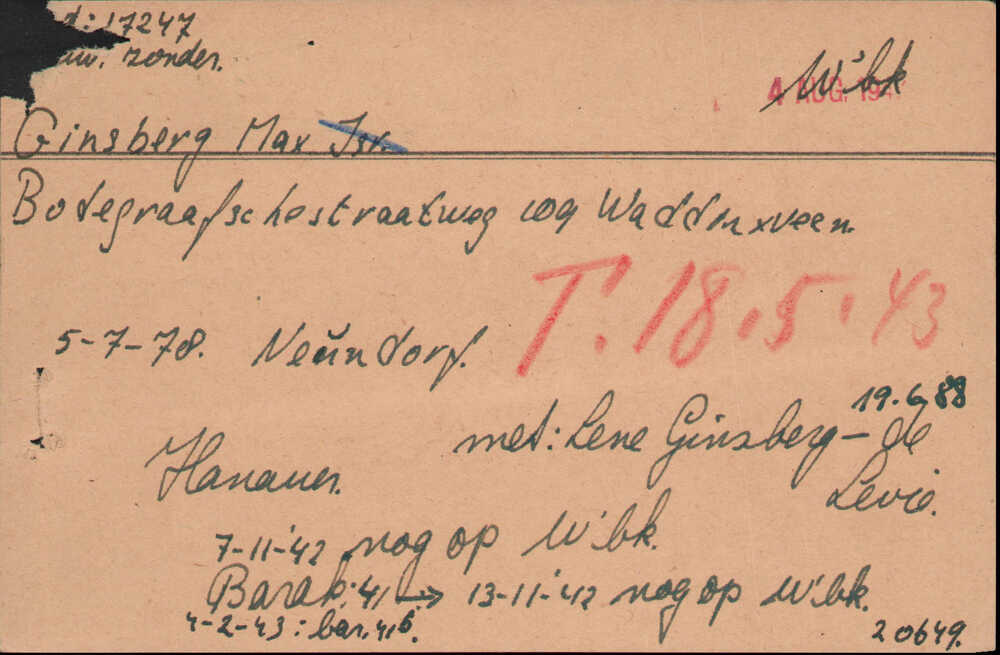 d: 17247
zonder.
W'bk
4 AUG. 194
Ginsberg Max Isr.
Bodegraafschestraatweg 109 Waddinxveen.
T. 18.5.43
5-7-78. Neundorf.
19.6.88
met: Lene Ginsberg - de Levie.
Hanauer.
7-11-'42 nog op W'bk.
Barak: 41 → 13-11-'42 nog op W'bk.
4-2-43: bar. 41 6.
20649.